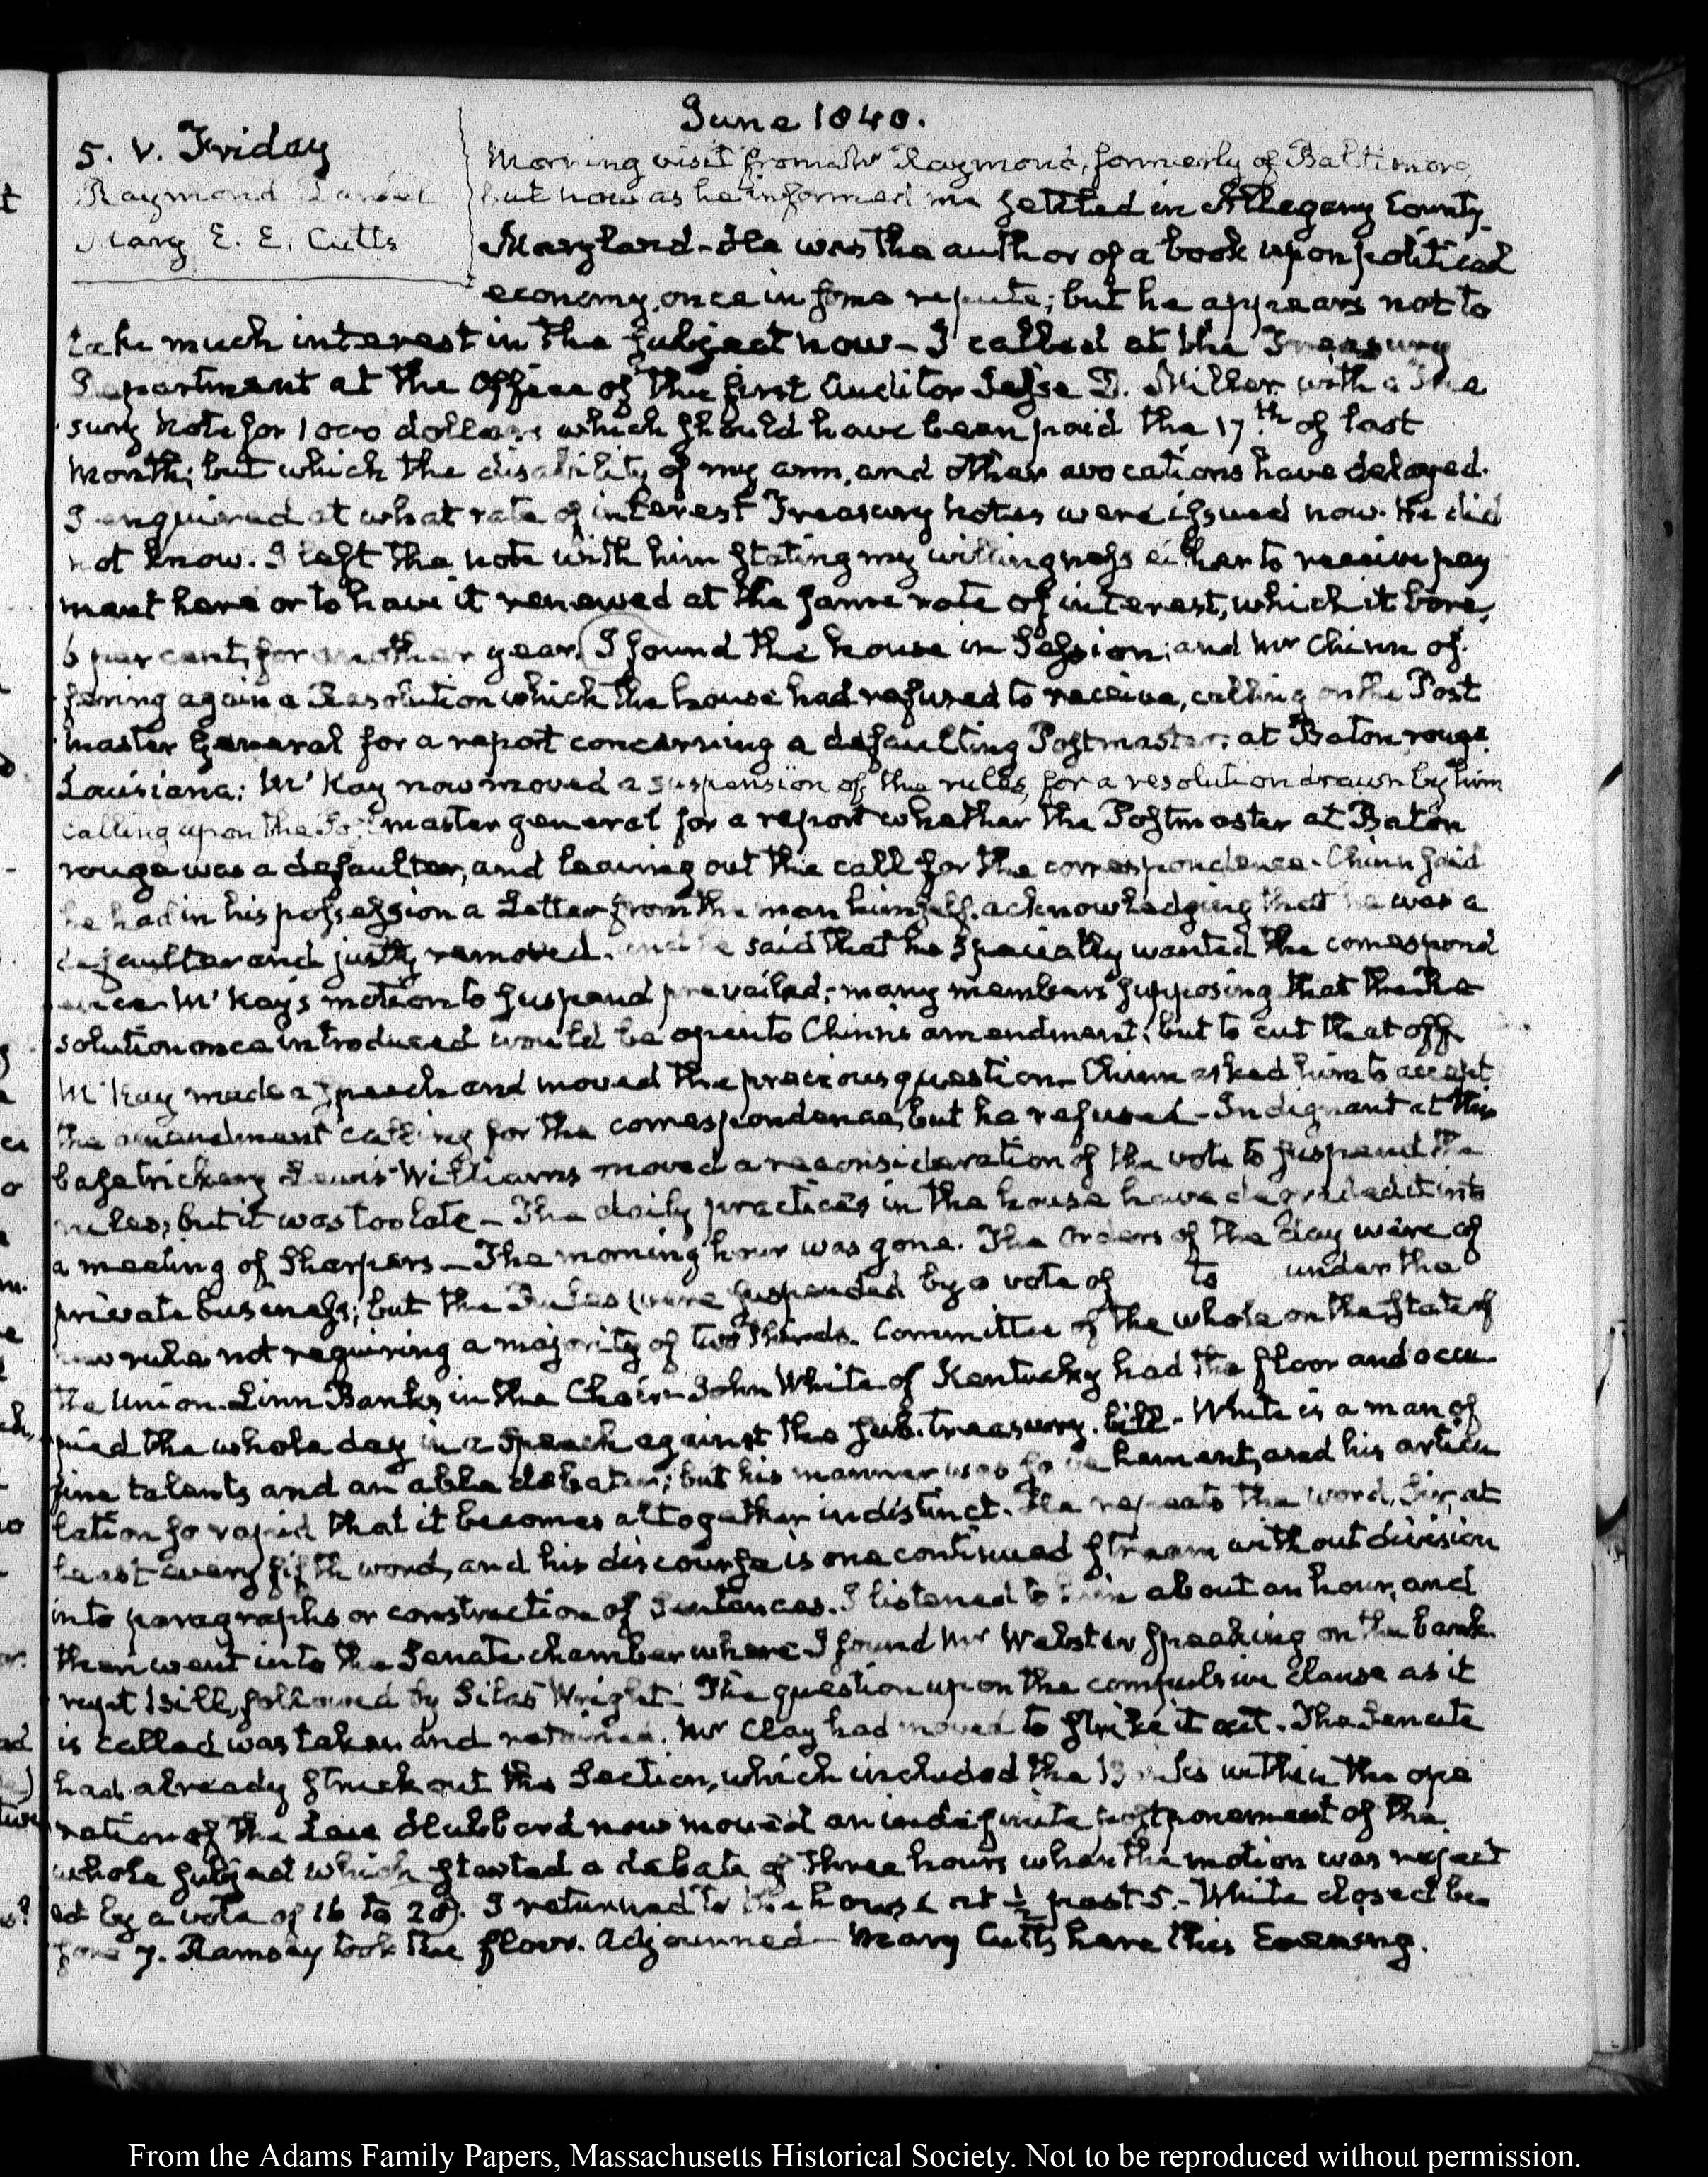 June 1840.
5. V. Friday
Raymond Daniel
Mary E. E. Cutts
Morning visit from Mr Raymond, formerly of Baltimore,
but now as he informed me settled in Allegany County
Maryland - He was the author of a book upon political
economy, once in some repute; but he appears not to
take much interest in the subject now - I called at the Treasury
Department at the Office of the first Auditor Jesse D. Miller with a Trea
sury Note for 1000 dollars which should have been paid the 17th of last
Month; but which the disability of my arm, and other avocations have delayed.
I enquired at what rate of interest Treasury notes were issued now. He did
not know. I left the note with him stating my willingness either to receive pay
ment here or to have it renewed at the same rate of interest, which it bore,
6 per cent, for another year. I found the house in Session; and Mr Chinn of
fering again a Resolution which the house had refused to receive, calling on the Post
master General for a report concerning a defaulting Postmaster, at Baton rouge
Louisiana: McKay now moved a suspension of the rules, for a resolution drawn by him
calling upon the Postmaster general for a report whether the Postmaster at Baton
rouge was a defaulter, and leaving out the call for the correspondence - Chinn said
he had in his possession a Letter from the man himself, acknowledging that he was a
defaulter and justly removed. and he said that he specially wanted the correspond
ence - McKay's motion to suspend prevailed; - many members supposing that the Re
solution once introduced would be open to Chinn's amendment; but to cut that off
McKay made a speech and moved the previous question - Chinn asked him to accept
the amendment calling for the correspondence, but he refused - Indignant at this
base trickery Lewis Williams moved a reconsideration of the vote to suspend the
rules, but it was too late - The daily practices in the house have degraded it into
a meeting of Sharpers - The morning hour was gone. The Orders of the day were of
private business; but the Rules were suspended by a vote of to under the
new rule not requiring a majority of two thirds. Committee of the whole on the state of
the Union. Linn Banks in the Chair - John White of Kentucky had the floor and occu
pied the whole day in a Speech against the sub. treasury. bill - White is a man of
fine talents and an able debater; but his manner was so vehement, and his articu
lation so rapid that it becomes altogether indistinct. He repeats the word, Sir, at
least every fifth word, and his discourse is one continued stream without division
into paragraphs or construction of Sentences. I listened to him about an hour, and
then went into the Senate chamber where I found Mr Webster speaking on the bank
rupt bill, followed by Silas Wright. The question upon the compulsive clause as it
is called was taken and retained. Mr Clay had moved to strike it out. The Senate
had already struck out the Section, which included the Banks within the ope
ration of the Law Hubbard now moved an indefinite postponement of the
whole subject which started a debate of three hours when the motion was reject
ed by a vote of 16 to 28. I returned to the house at ½ past 5. - White closed be
fore 7. Ramsey took the floor. Adjourned - Mary Cutts here this Evening.
From the Adams Family Papers, Massachusetts Historical Society. Not to be reproduced without permission.